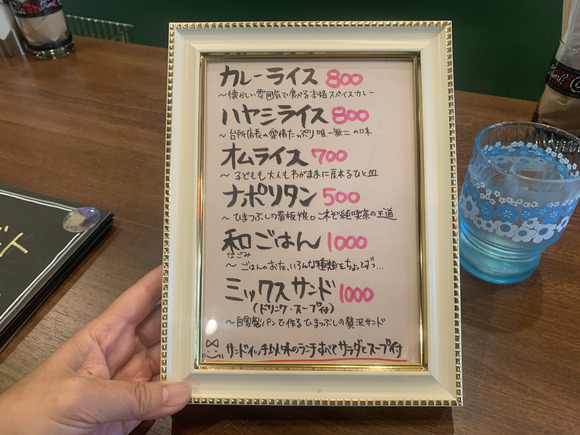 カレーライス 800
～懐かしい雰囲気で食べる本格スパイスカレー
ハヤシライス 800
～台所店長の愛情たっぷり唯一無二の味
オムライス 700
～子どもも大人もわがままに
ナポリタン 500
～ひまつぶしの看板娘。これぞ純喫茶の王道
和ごはん 1000
なごみ
～ごはんのおとも、いろんな種類をちょっとずつ…
ミックスサンド 1000
(ドリンク・スープ付)
～自家製パンで作るひまつぶしの贅沢サンド
サンドイッチ以外のランチすべてサラダとスープ付